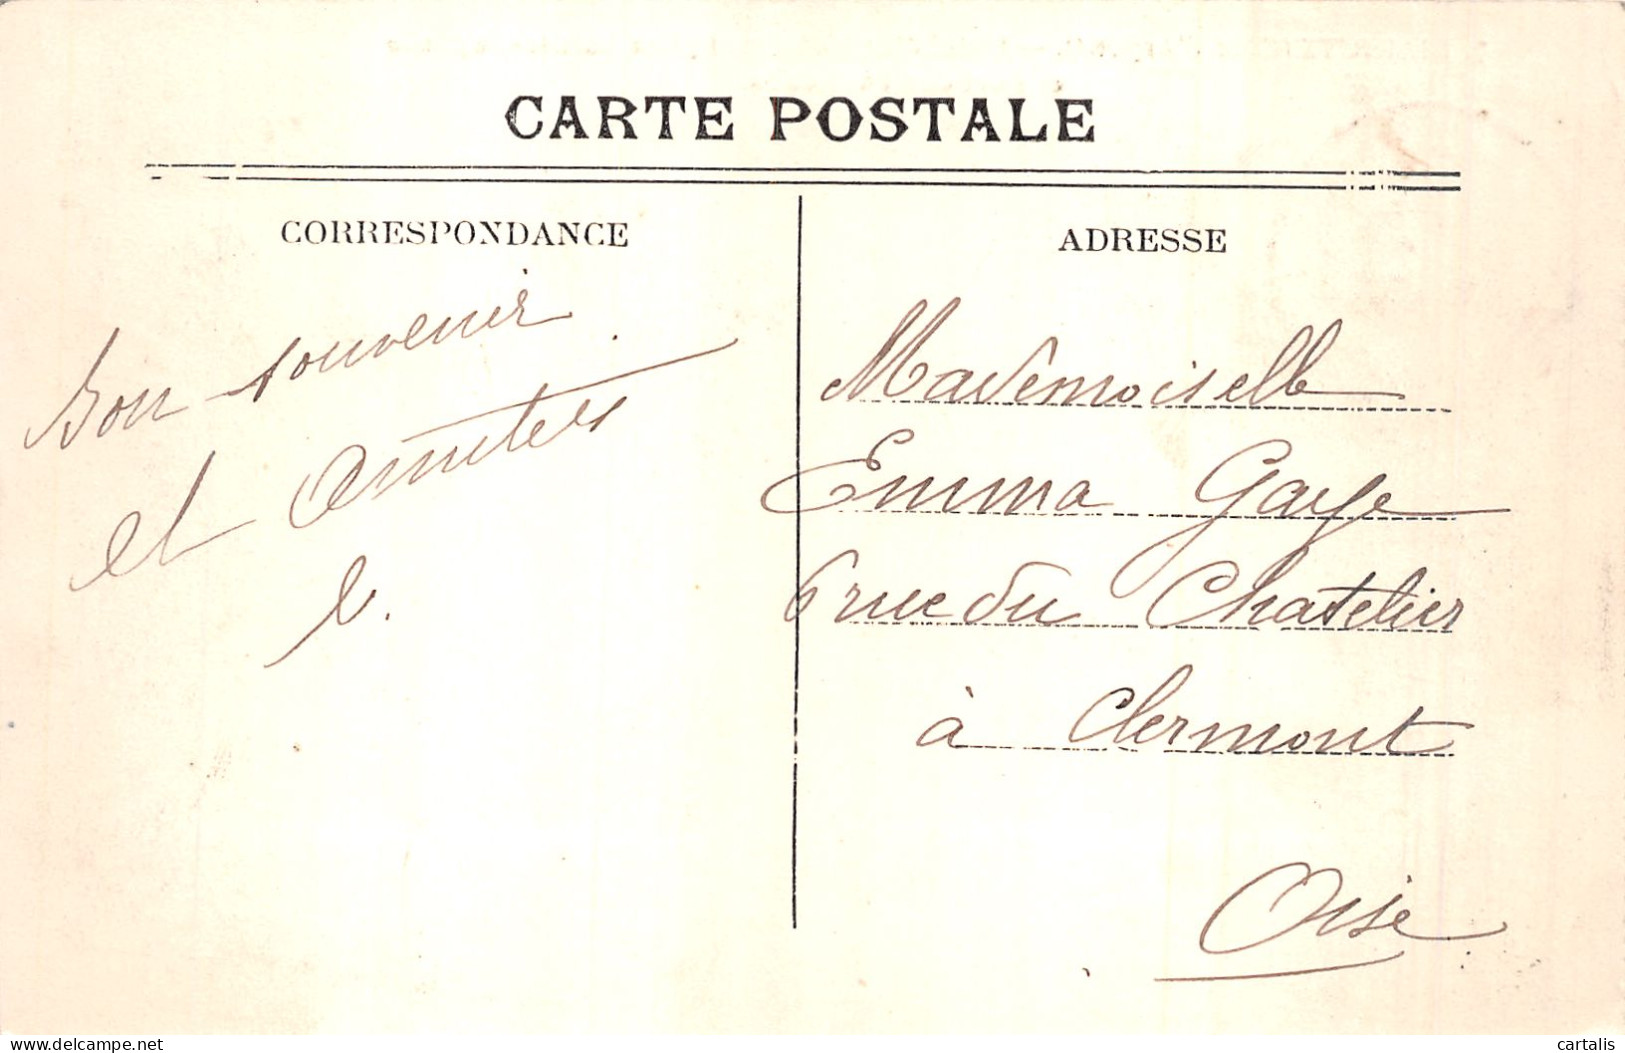 CARTE POSTALE
CORRESPONDANCE
ADRESSE
Bon souvenir
et Amitiés
E.
Mademoiselle
Emma Gaye
6 rue du Chatelier
à Clermont
Oise
delcampe.net
cartalis